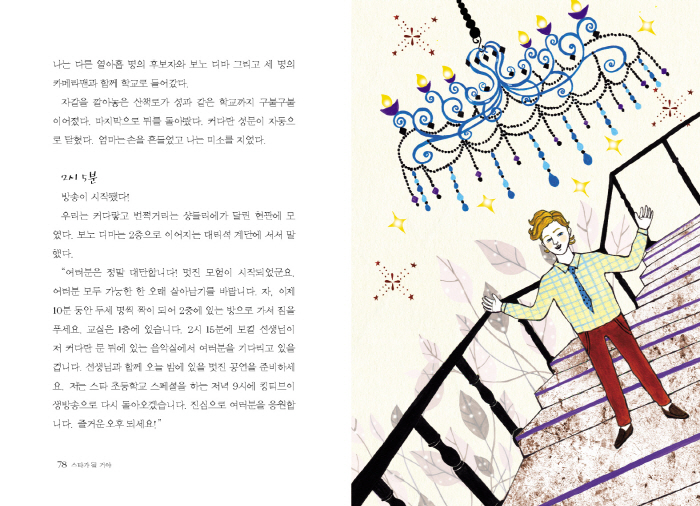 나는 다른 열아홉 명의 후보자와 보노 디마 그리고 세 명의
카메라맨과 함께 학교로 들어갔다.
자갈을 깔아놓은 산책로가 성과 같은 학교까지 구불구불
이어졌다. 마지막으로 뒤를 돌아봤다. 커다란 성문이 자동으
로 닫혔다. 엄마는 손을 흔들었고 나는 미소를 지었다.
2시 5분
방송이 시작됐다!
우리는 커다랗고 번쩍거리는 샹들리에가 달린 현관에 모
였다. 보노 디마는 2층으로 이어지는 대리석 계단에 서서 말
했다.
“여러분은 정말 대단합니다! 멋진 모험이 시작되었군요.
여러분 모두 가능한 한 오래 살아남기를 바랍니다. 자, 이제
10분 동안 두세 명씩 짝이 되어 2층에 있는 방으로 가서 짐을
푸세요. 교실은 1층에 있습니다. 2시 15분에 모칼 선생님이
저 커다란 문 뒤에 있는 음악실에서 여러분을 기다리고 있을
겁니다. 선생님과 함께 오늘 밤에 있을 멋진 공연을 준비하세
요. 저는 스타 초등학교 스페셜을 하는 저녁 9시에 킹티브이
생방송으로 다시 돌아오겠습니다. 진심으로 여러분을 응원합
니다. 즐거운 오후 되세요!”
78 스타가 될 거야